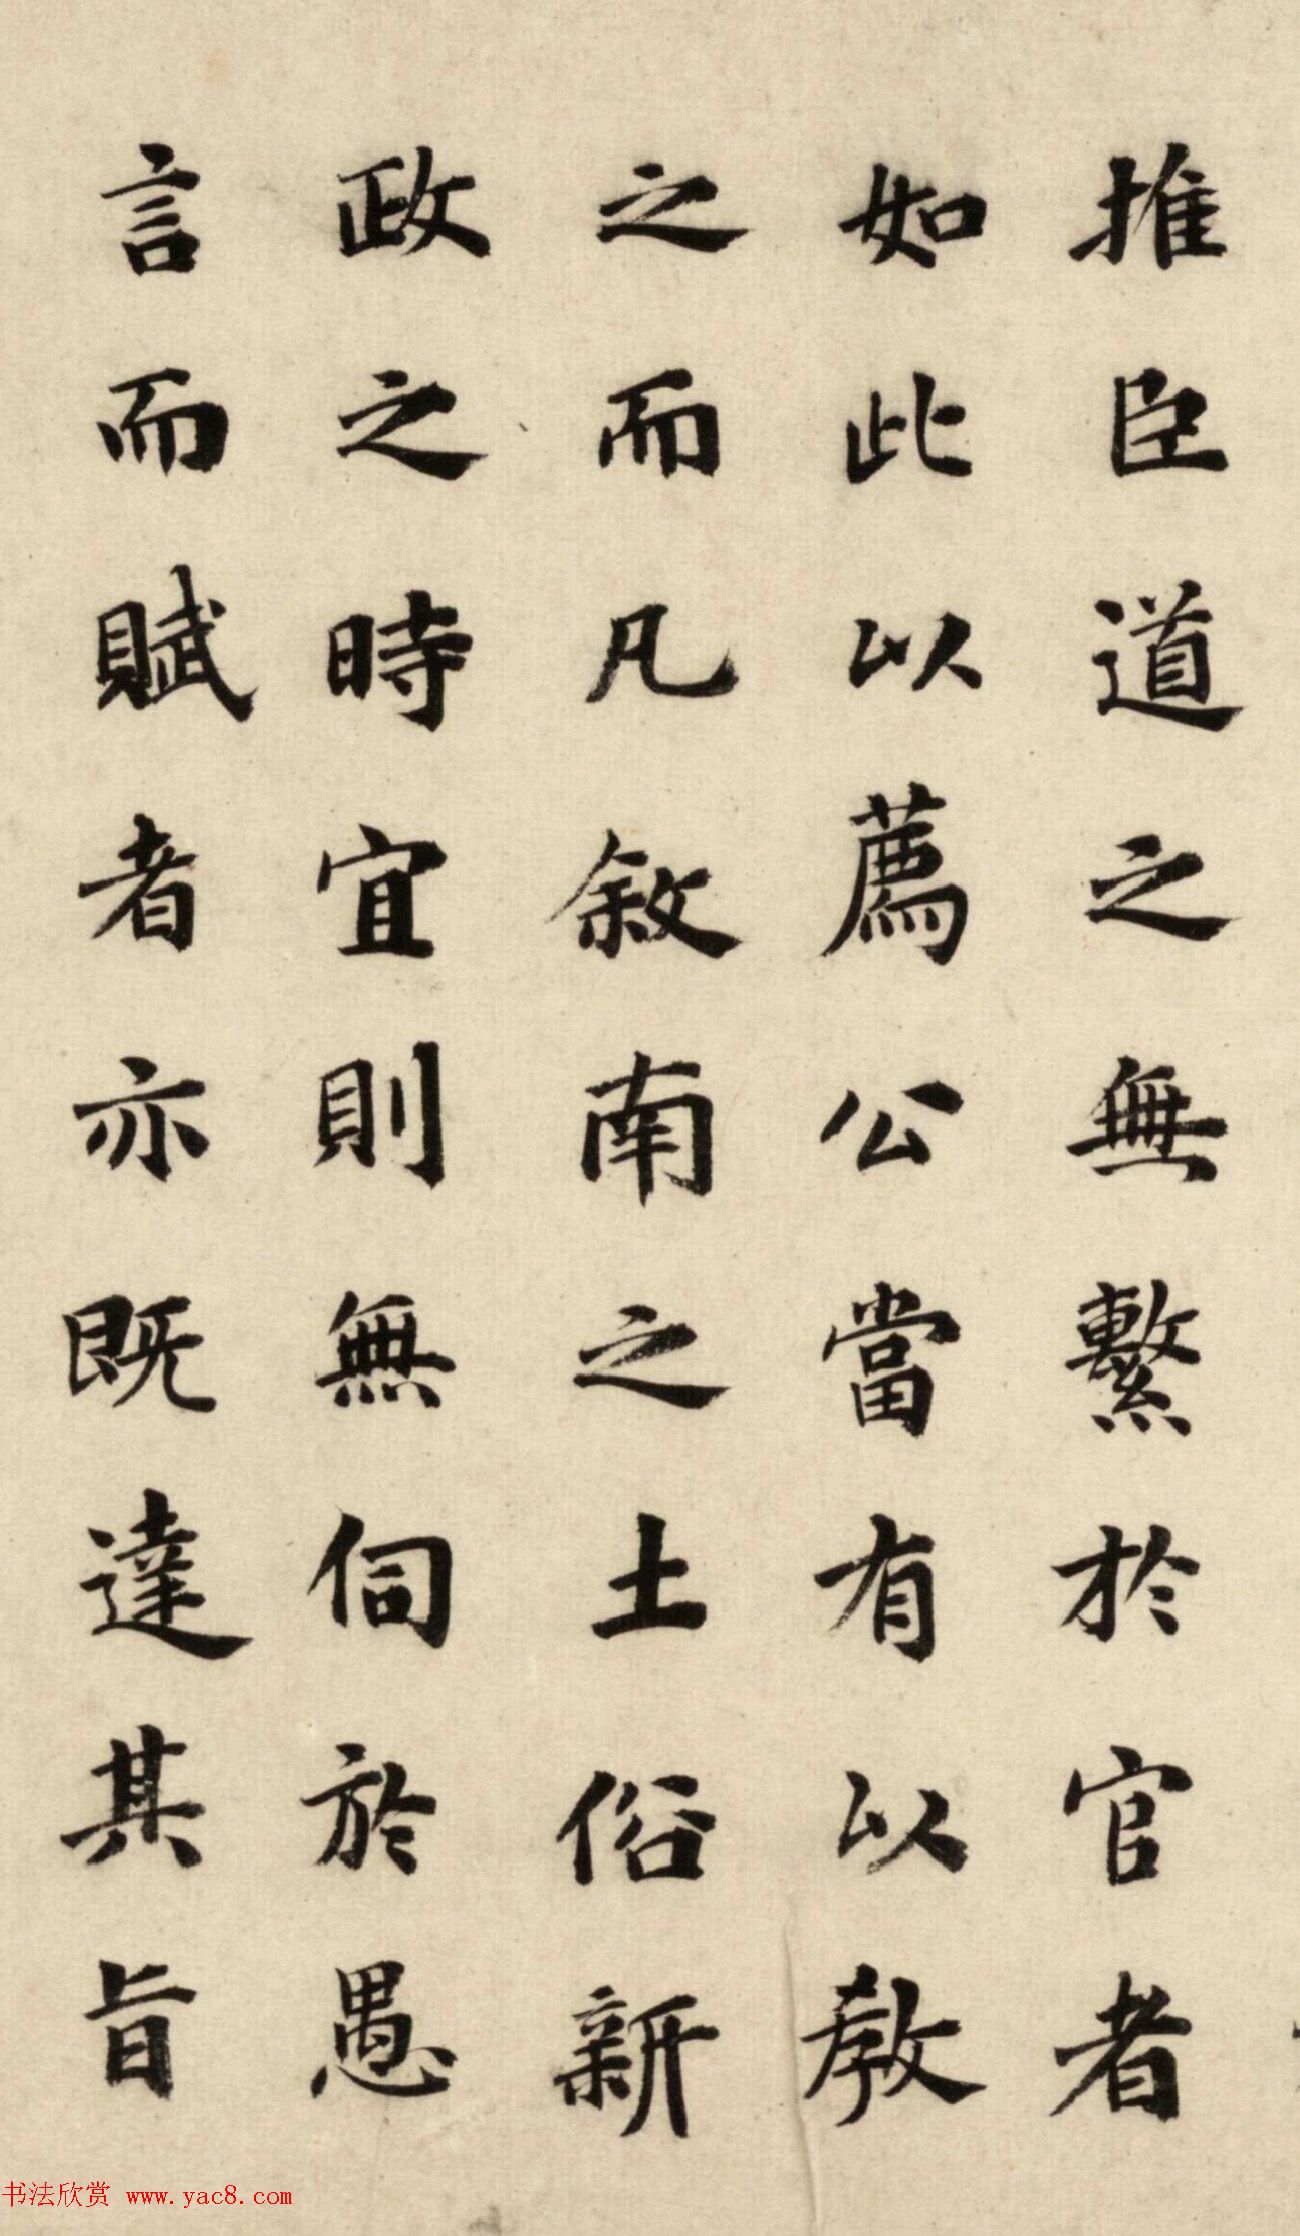 推臣道之無繫於官者
如此以薦公當有以教
之而凡敘南之土俗新
政之時宜則無伺於愚
言而賦者亦既達其旨
书法欣赏 www.yac8.com